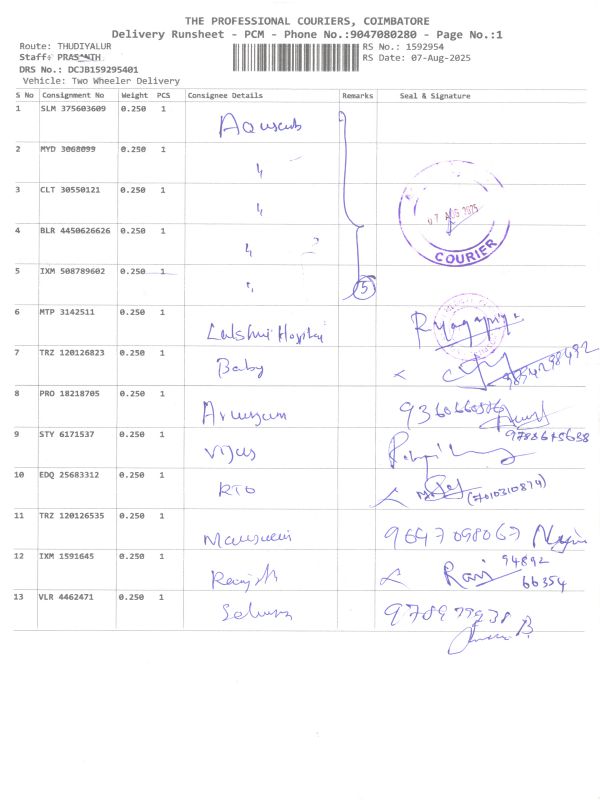 THE PROFESSIONAL COURIERS, COIMBATORE
Delivery Runsheet - PCM - Phone No.:9047080280 - Page No.:1
Route: THUDIYALUR
RS No.: 1592954
Staff: PRASANTH
RS Date: 07-Aug-2025
DRS No.: DCJB159295401
Vehicle: Two Wheeler Delivery
S No Consignment No Weight PCS Consignee Details Remarks Seal & Signature
1 SLM 375603609 0.250 1
2 MYD 3068099 0.250 1
3 CLT 30550121 0.250 1
07 AUG 2025
4 BLR 4450626626 0.250 1
COURIER
5 IXM 508789602 0.250 1 5
6 MTP 3142511 0.250 1 Lakshmi Hospital
7 TRZ 120126823 0.250 1 Baby
8 PRO 18218705 0.250 1 Arumugam
9 STY 6171537 0.250 1 9788645638
10 EDQ 25683312 0.250 1 RTO (7010310874)
11 TRZ 120126535 0.250 1
12 IXM 1591645 0.250 1 Ravi 94892
66354
13 VLR 4462471 0.250 1